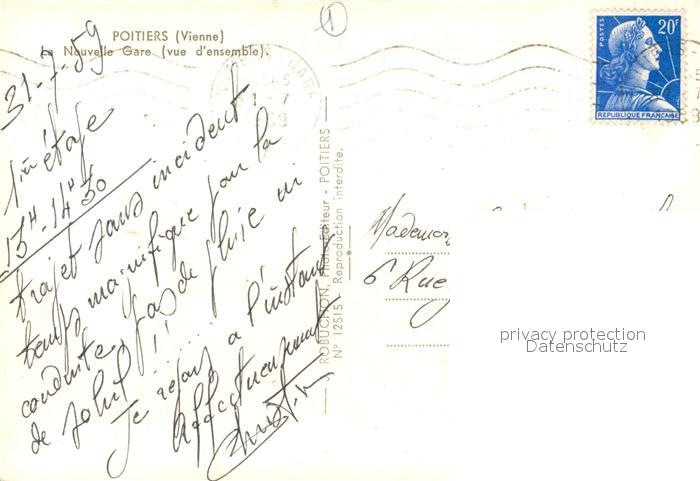 POITIERS (Vienne)
La Nouvelle Gare (vue d'ensemble).
1
POSTES
20F
REPUBLIQUE FRANÇAISE
GARE
31-7-59
1ère étape
13H-14H30
trajet sans incident
temps magnifique pour la
conduite, pas de pluie ni
de soleil !!
Je repars à l'instant
Affectueusement
J. ROBUCHON, Photo-Editeur - POITIERS
N° 12515 Reproduction interdite.
6 Rue
privacy protection
Datenschutz